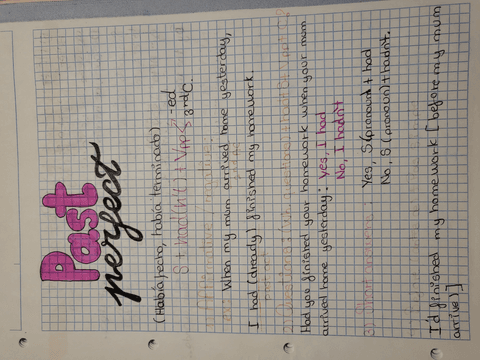 Past
perfect
(Había hecho, había terminado)
S + had(n't) + Vpps -ed
3rd C.
When my mum arrived home yesterday,
I had (already) finished my homework
Had you finished your homework when your mum
arrived home yesterday: Yes, I had
No, I hadn't
Yes, S (pronoun) + had
No, S (pronoun) + hadn't.
I'd finished my homework [before my mum
arrive)]